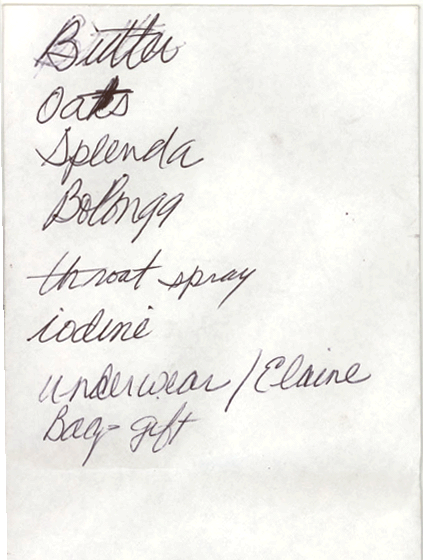 Butter
Oats
Splenda
Bolonga
throat spray
iodine
underwear / Elaine
Bag - gift